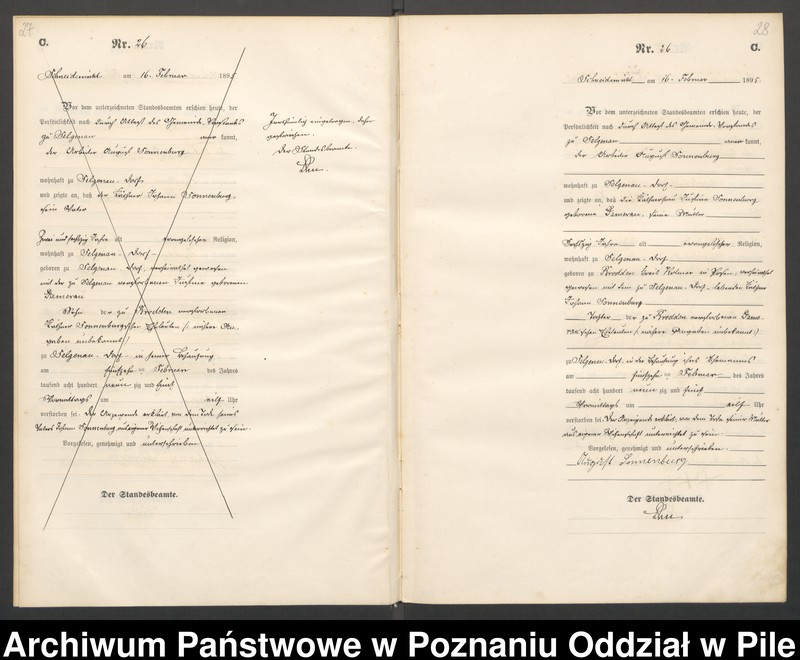 27
C.
Nr. 26
Schneidemühl am 16. Februar 1895.
Vor dem unterzeichneten Standesbeamten erschien heute, der
Persönlichkeit nach durch Attest des Gemeinde-Vorstands
zu Selgenau kannt,
der Arbeiter August Sonnenburg
wohnhaft zu Selgenau-Dorf
und zeigte an, daß der Käthner Johann Sonnenburg,
sein Vater
Zwei und sechszig Jahre alt evangelischer Religion,
wohnhaft zu Selgenau-Dorf
geboren zu Selgenau-Dorf, verheirathet gewesen
mit der zu Selgenau verstorbenen Justine geborenen
Sohn der zu Brodden verstorbenen
Käthner Sonnenburg'schen Eheleute (: nähere An-
gaben unbekannt :)
zu Selgenau-Dorf in seiner Behausung
am fünfzehn ten Februar des Jahres
tausend acht hundert neun zig und fünf
Vormittags um eilf Uhr
verstorben sei. Der Anzeigende erklärt, von dem Tode seines
Vaters Johann Sonnenburg aus eigener Wissenschaft unterrichtet zu sein.
Vorgelesen, genehmigt und unterschrieben
Der Standesbeamte.
Irrthümlich eingetragen, daher
gestrichen.
Der Standesbeamte.
28
Nr. 26
C.
Schneidemühl am 16. Februar 1895.
Vor dem unterzeichneten Standesbeamten erschien heute, der
Persönlichkeit nach durch Attest des Gemeinde-Vorstands
zu Selgenau kannt,
der Arbeiter August Sonnenburg
wohnhaft zu Selgenau-Dorf
und zeigte an, daß die Käthnerfrau Justine Sonnenburg
geborene seine Mutter
Sechszig Jahre alt evangelischer Religion,
wohnhaft zu Selgenau-Dorf
geboren zu Brodden Kreis Kolmar in Posen, verheirathet
gewesen mit dem zu Selgenau-Dorf lebenden Käthner
Johann Sonnenburg
Tochter der zu Brodden verstorbenen
Eheleute (: nähere Angaben unbekannt :)
zu Selgenau-Dorf in der Behausung ihres Ehemannes
am fünfzehn ten Februar des Jahres
tausend acht hundert neun zig und fünf
Vormittags um eilf Uhr
verstorben sei. Der Anzeigende erklärt, von dem Tode seiner Mutter
aus eigener Wissenschaft unterrichtet zu sein.
Vorgelesen, genehmigt und unterschrieben.
August Sonnenburg
Der Standesbeamte.
Archiwum Państwowe w Poznaniu Oddział w Pile